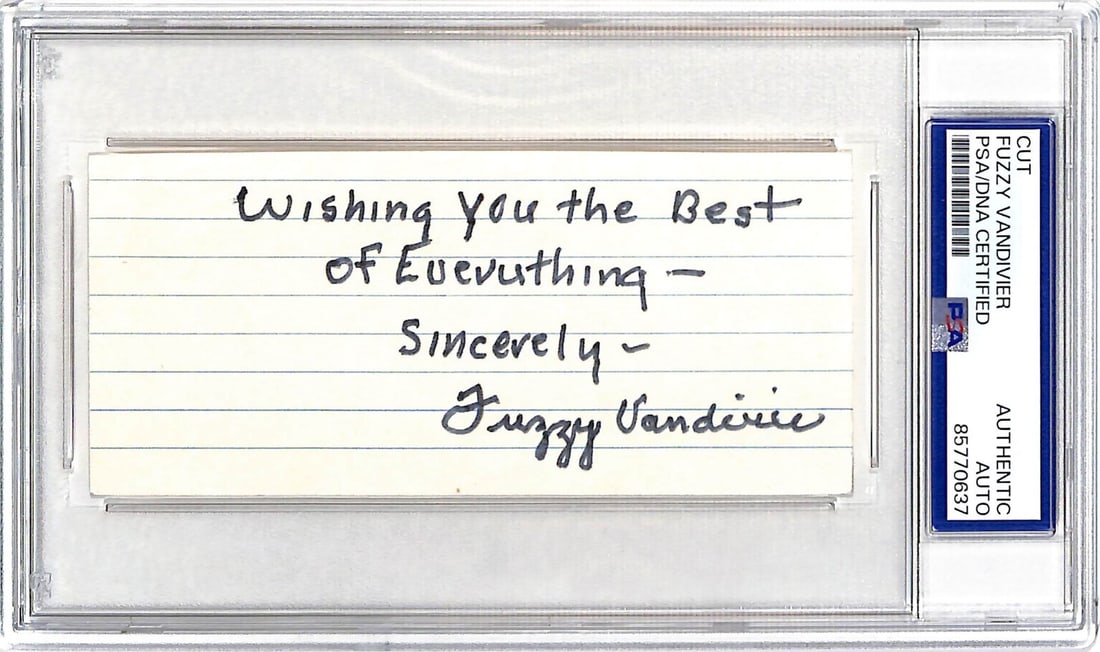 Wishing You the Best
of Everything —
Sincerely –
Fuzzy Vandivier
CUT
FUZZY VANDIVIER
PSA/DNA CERTIFIED
PSA
AUTHENTIC
AUTO
85770637